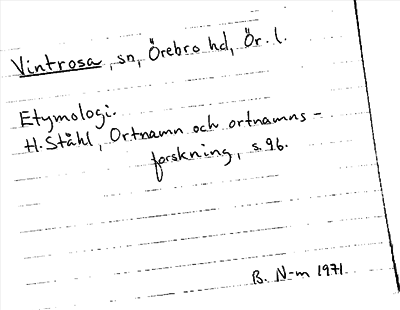 Vintrosa, sn, Örebro hd, Ör. l.
Etymologi.
H. Ståhl, Ortnamn och ortnamns-
forskning, s. 96.
B. N-m 1971